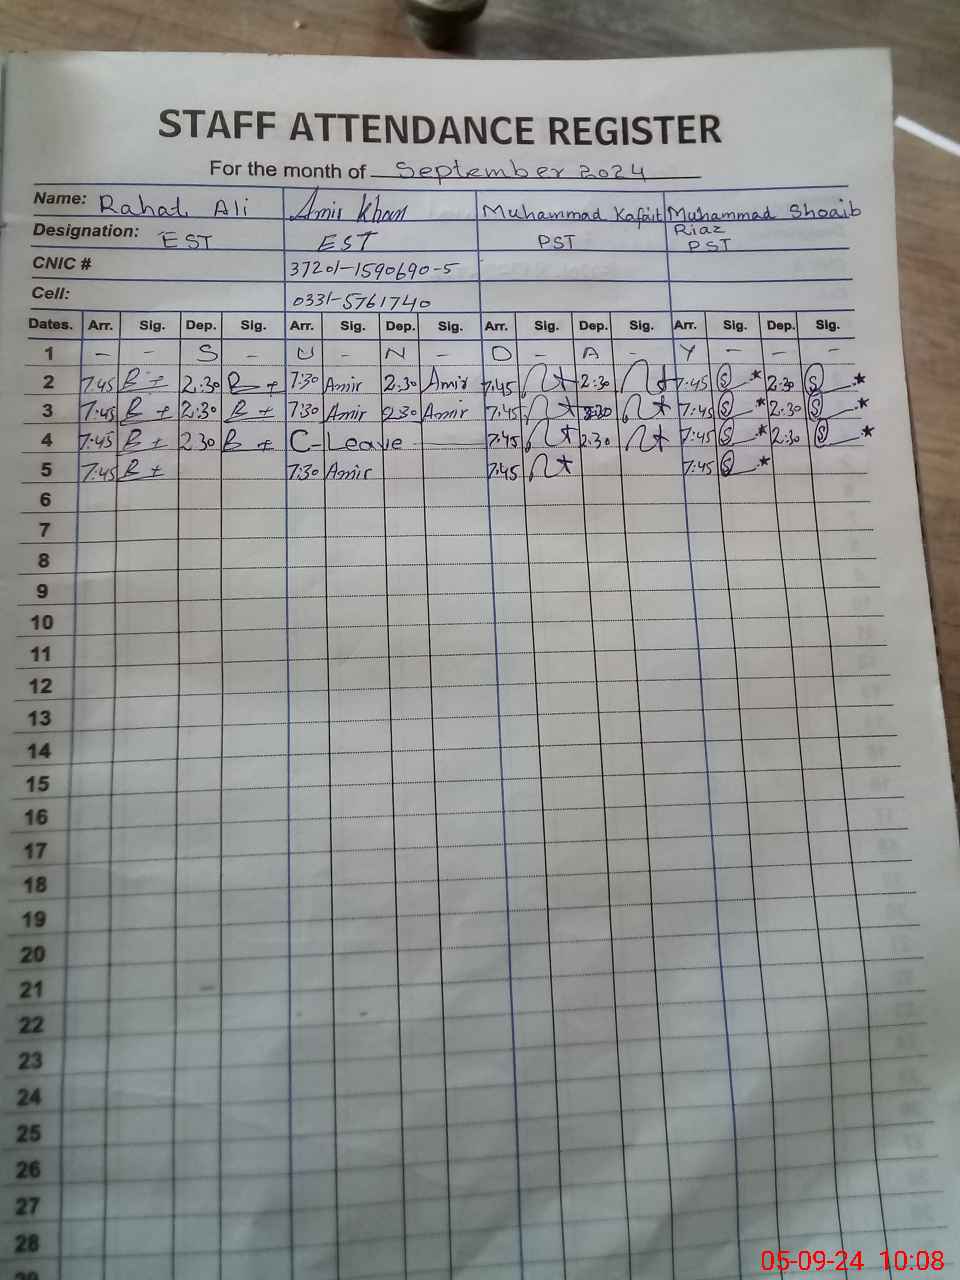 STAFF ATTENDANCE REGISTER
For the month of September 2024
Name: Rahat Ali Amir Khan Muhammad Kafait Muhammad Shoaib
Riaz
Designation: EST EST PST PST
CNIC # 37201-1590690-5
Cell: 0331-5761740
Dates. Arr. Sig. Dep. Sig. Arr. Sig. Dep. Sig. Arr. Sig. Dep. Sig. Arr. Sig. Dep. Sig.
1 - - S - U - N - D - A - Y - - -
2 7:45 2:30 7:30 Amir 2:30 Amir 7:45 2:30 7:45 2:30
3 7:45 2:30 7:30 Amir 2:30 Amir 7:45 2:30 7:45 2:30
4 7:45 2:30 C-Leave 7:45 2:30 7:45 2:30
5 7:45 7:30 Amir 7:45 7:45
6
7
8
9
10
11
12
13
14
15
16
17
18
19
20
21
22
23
24
25
26
27
28
29
05-09-24 10:08